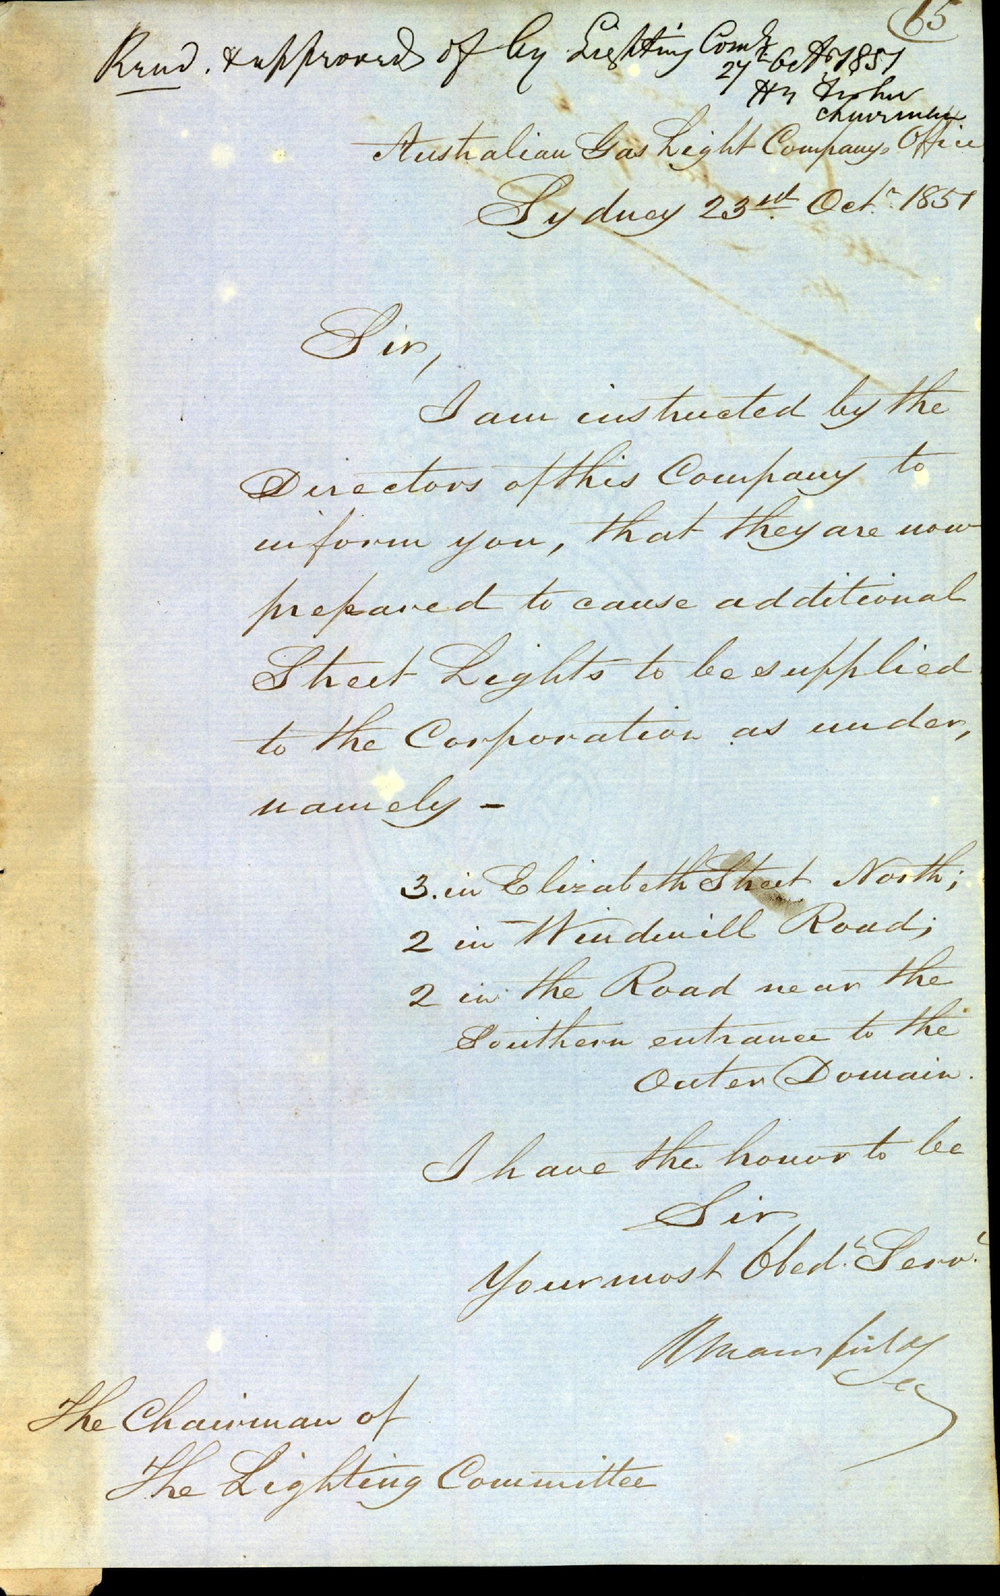 65
Recd. & approved of by Lighting Comte
27th Octr 1851
Hy Fisher
Chairman
Australian Gas Light Companys Office
Sydney 23rd. Octr. 1851
Sir,
I am instructed by the
Directors of this Company to
inform you, that they are now
prepared to cause additional
Street Lights to be supplied
to the Corporation as under,
namely –
3. in Elizabeth Street North;
2 in Windmill Road;
2 in the Road near the
Southern entrance to the
Outer Domain.
I have the honor to be
Sir
Your most Obedt. Servt.
R Mansfield
Secy
The Chairman of
The Lighting Committee